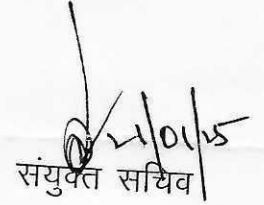 21/01/25
संयुक्त सचिव